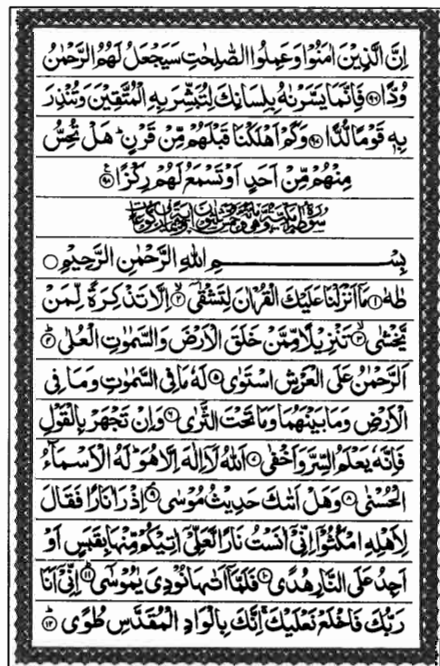 اِنَّ الَّذِيۡنَ اٰمَنُوۡا وَعَمِلُوا الصّٰلِحٰتِ سَيَجۡعَلُ لَهُمُ الرَّحۡمٰنُ
وُدًّا ﴿۹۶﴾ فَاِنَّمَا يَسَّرۡنٰهُ بِلِسَانِكَ لِتُبَشِّرَ بِهِ الۡمُتَّقِيۡنَ وَتُنۡذِرَ
بِهٖ قَوۡمًا لُّدًّا ﴿۹۷﴾ وَكَمۡ اَهۡلَكۡنَا قَبۡلَهُمۡ مِّنۡ قَرۡنٍؕ هَلۡ تُحِسُّ
مِنۡهُمۡ مِّنۡ اَحَدٍ اَوۡ تَسۡمَعُ لَهُمۡ رِكۡزًا ﴿۹۸﴾
بِسۡمِ اللّٰهِ الرَّحۡمٰنِ الرَّحِيۡمِ
طٰهٰ ﴿۱﴾ مَاۤ اَنۡزَلۡنَا عَلَيۡكَ الۡقُرۡاٰنَ لِتَشۡقٰٓى ﴿۲﴾ اِلَّا تَذۡكِرَةً لِّمَنۡ
يَّخۡشٰى ﴿۳﴾ تَنۡزِيۡلًا مِّمَّنۡ خَلَقَ الۡاَرۡضَ وَالسَّمٰوٰتِ الۡعُلٰى ﴿۴﴾
اَلرَّحۡمٰنُ عَلَى الۡعَرۡشِ اسۡتَوٰى ﴿۵﴾ لَهٗ مَا فِى السَّمٰوٰتِ وَمَا فِى
الۡاَرۡضِ وَمَا بَيۡنَهُمَا وَمَا تَحۡتَ الثَّرٰى ﴿۶﴾ وَاِنۡ تَجۡهَرۡ بِالۡقَوۡلِ
فَاِنَّهٗ يَعۡلَمُ السِّرَّ وَاَخۡفٰى ﴿۷﴾ اَللّٰهُ لَاۤ اِلٰهَ اِلَّا هُوَؕ لَهُ الۡاَسۡمَآءُ
الۡحُسۡنٰى ﴿۸﴾ وَهَلۡ اَتٰٮكَ حَدِيۡثُ مُوۡسٰى ﴿۹﴾ اِذۡ رَاٰ نَارًا فَقَالَ
لِاَهۡلِهِ امۡكُثُوۡۤا اِنِّىۡۤ اٰنَسۡتُ نَارًا لَّعَلِّىۡۤ اٰتِيۡكُمۡ مِّنۡهَا بِقَبَسٍ اَوۡ
اَجِدُ عَلَى النَّارِ هُدًى ﴿۱۰﴾ فَلَمَّاۤ اَتٰٮهَا نُوۡدِىَ يٰمُوۡسٰى ﴿۱۱﴾ اِنِّىۡۤ اَنَا
رَبُّكَ فَاخۡلَعۡ نَعۡلَيۡكَۚ اِنَّكَ بِالۡوَادِ الۡمُقَدَّسِ طُوًى ﴿۱۲﴾